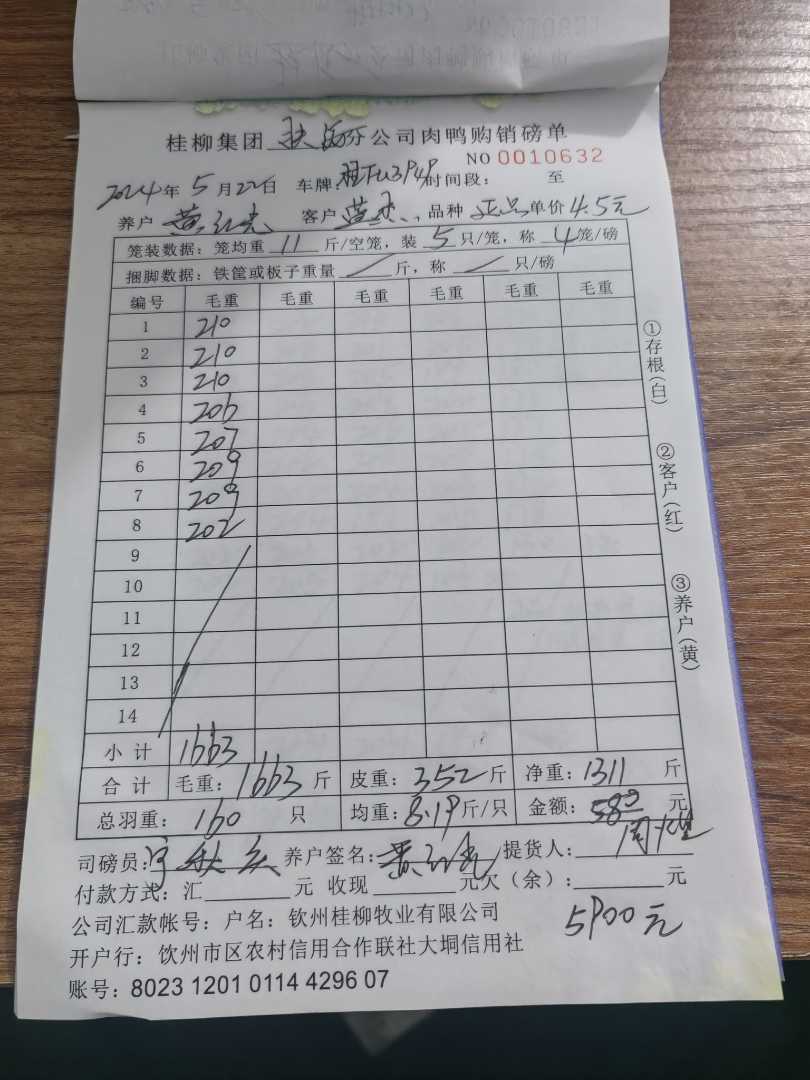 桂柳集团 钦海分公司肉鸭购销磅单
NO 0010632
2024年5月22日 车牌: 时间段: 至
养户 黄红光 客户 蓝 品种 正品 单价 4.5元
笼装数据:笼均重 11 斤/空笼,装 5 只/笼,称 4 笼/磅
捆脚数据:铁筐或板子重量 / 斤,称 / 只/磅
编号 毛重 毛重 毛重 毛重 毛重 毛重
1 210
2 210
3 210
4 206
5 207
6 209
7 209
8 202
9
10
11
12
13
14
小计 1663
合计 毛重:1663斤 皮重:352斤 净重:1311斤
总羽重:160只 均重:8.19斤/只 金额: 元
司磅员: 养户签名:黄红光 提货人:
付款方式:汇 元 收现 元欠(余): 元
5900元
公司汇款帐号:户名:钦州桂柳牧业有限公司
开户行:钦州市区农村信用合作联社大垌信用社
账号:8023 1201 0114 4296 07
①存根(白)
②客户(红)
③养户(黄)